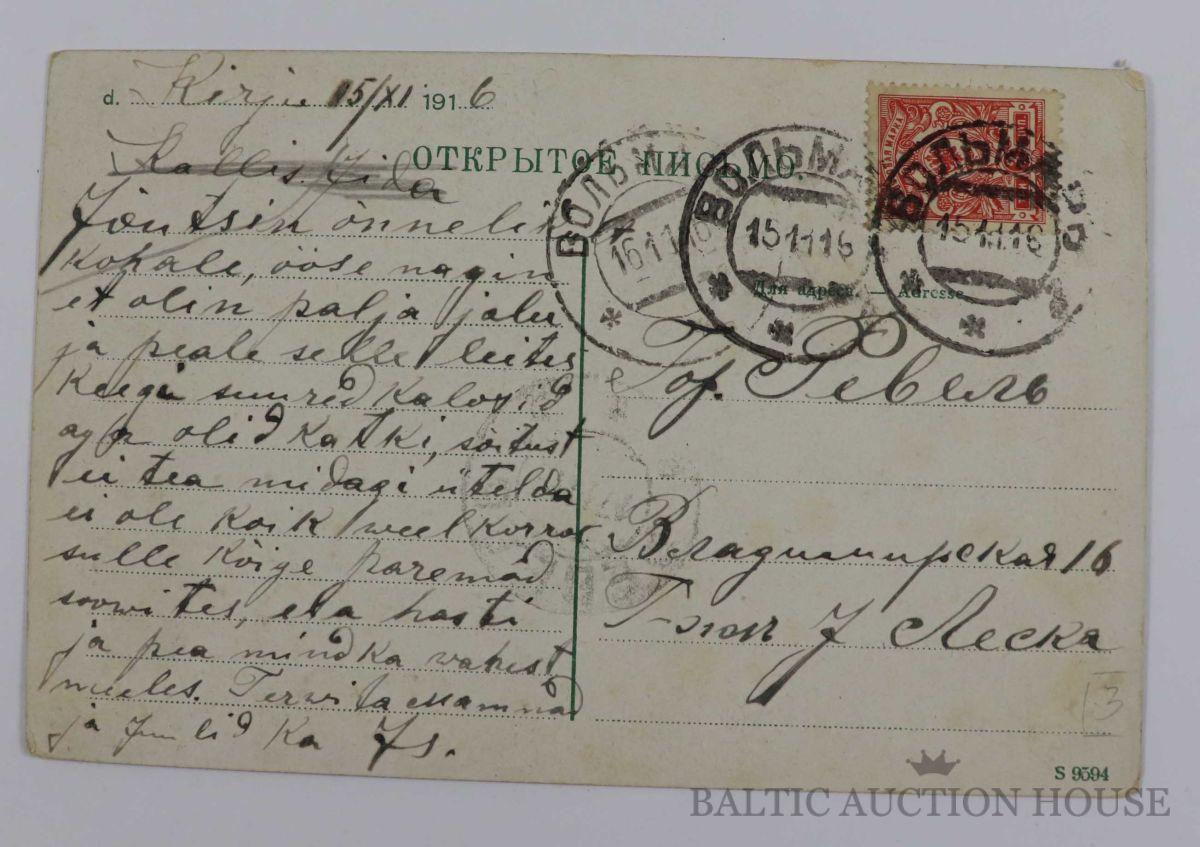 d. Kirju 15/XI 1916
ОТКРЫТОЕ ПИСЬМО.
Kallis Iida
Jõutsin õnnelik
kohale, ööse nagin
et olin palja jalu
ja peale selle leites
Keegi suured kalossid
aga olid Katki, sõitust
ei tea midagi ütelda
ei ole Koik weel korras
sulle kõige paremad
soowites, ela hasti
ja pea mind ka wahest
meeles. Terwita Mammad
ja lid ka Js.
ВОЛЬМА
16.11.16
ВОЛЬМА
15.11.16
ВОЛЬМ
15.11.16
Для адреса. — Adresse
Гор. Ревель
Владимирская 16
Г-жп J Леска
3
S 9594
BALTIC AUCTION HOUSE